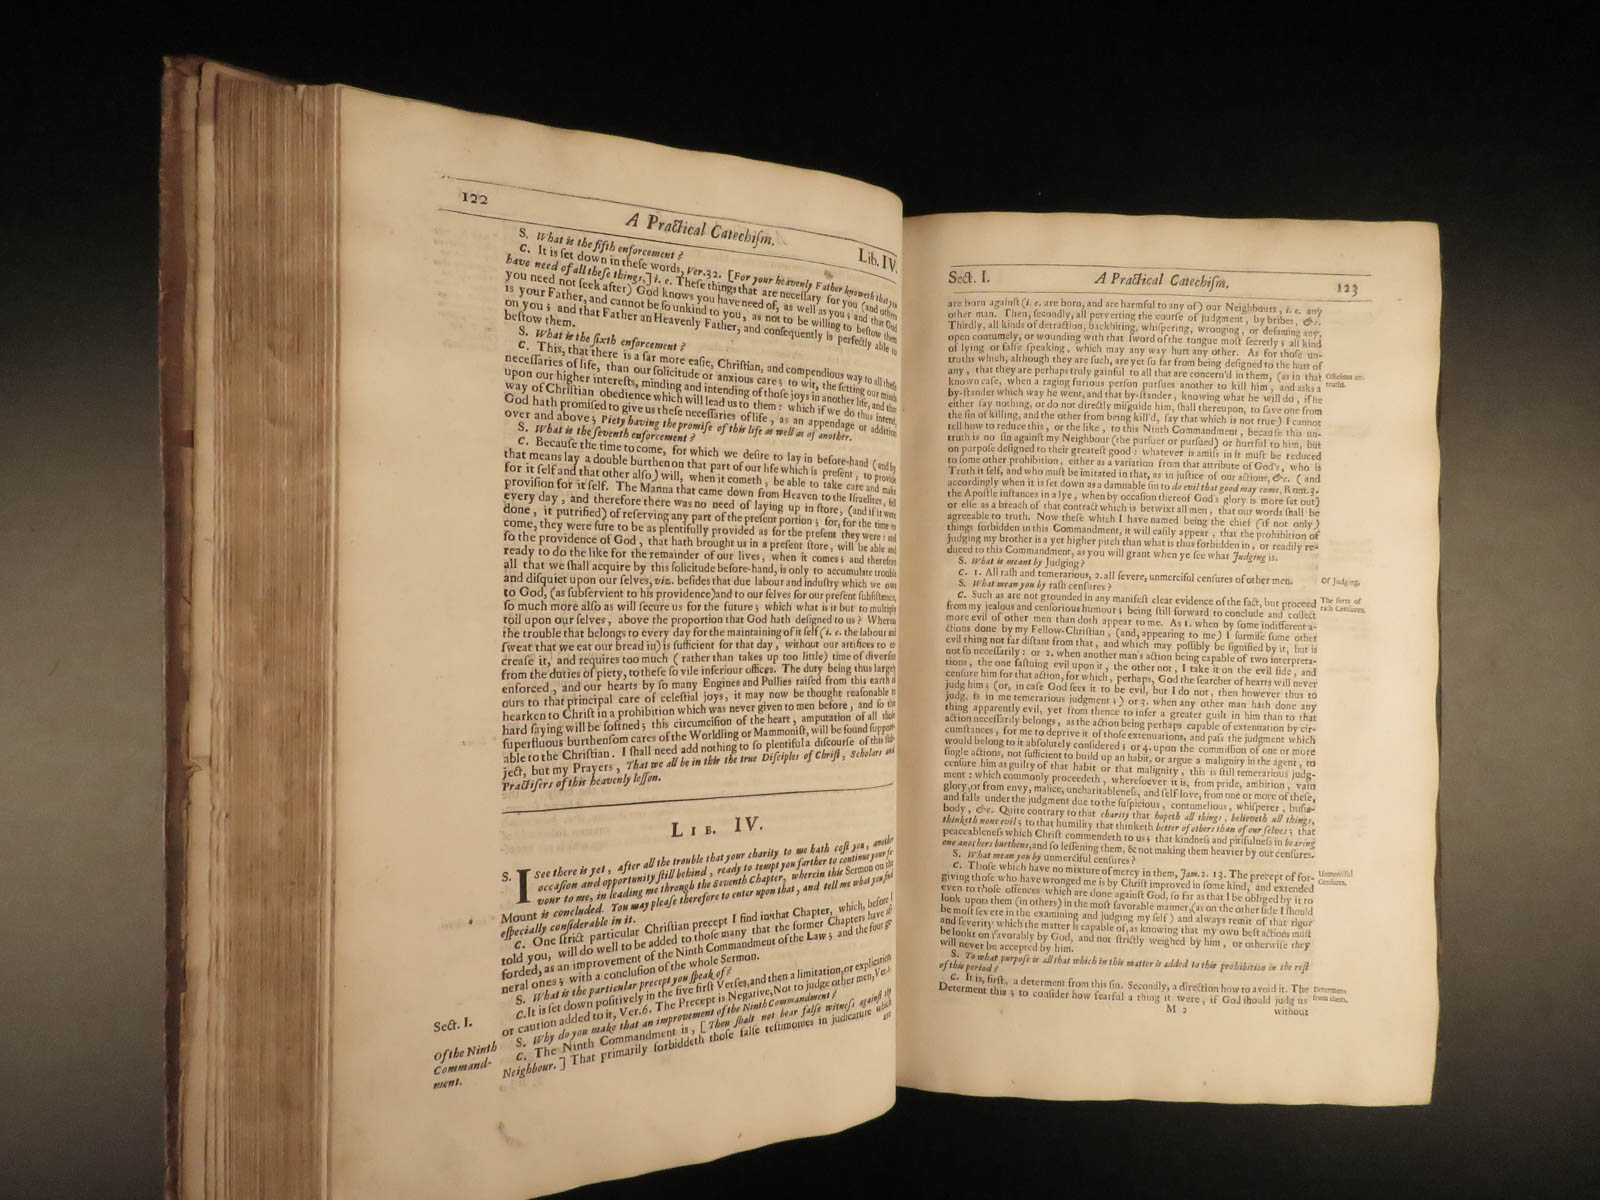 122
A Practical Catechiſm.
Lib. IV.
S. What is the fifth enforcement?
C. It is ſet down in theſe words, Ver. 32. [For your heavenly Father knoweth that you
have need of all theſe things,] i. e. Theſe things that are neceſſary for you (and others
you need not ſeek after) God knows you have need of, as well as you; and that God
is your Father, and cannot be ſo unkind to you, as not to be willing to beſtow them
on you; and that Father an Heavenly Father, and conſequently is perfectly able to
beſtow them.
S. What is the ſixth enforcement?
C. This, that there is a far more eaſie, Chriſtian, and compendious way to all theſe
neceſſaries of life, than our ſolicitude or anxious care; to wit, the ſetting our minds
upon our higher intereſts, minding and intending of thoſe joys in another life, and that
way of Chriſtian obedience which will lead us to them: which if we do thus intend,
God hath promiſed to give us theſe neceſſaries of life, as an appendage or addition
over and above; Piety having the promiſe of this life as well as of another.
S. What is the ſeventh enforcement?
C. Becauſe the time to come, for which we deſire to lay in before-hand (and by
that means lay a double burthen on that part of our life which is preſent, to provide
for it ſelf and that other alſo) will, when it cometh, be able to take care and make
proviſion for it ſelf. The Manna that came down from Heaven to the Iſraelites, fell
every day, and therefore there was no need of laying up in ſtore, (and if it were
done, it putrified) of reſerving any part of the preſent portion; for, for the time to
come, they were ſure to be as plentifully provided as for the preſent they were: and
ſo the providence of God, that hath brought us in a preſent ſtore, will be able and
ready to do the like for the remainder of our lives, when it comes; and therefore
all that we ſhall acquire by this ſolicitude before-hand, is only to accumulate trouble
and diſquiet upon our ſelves, viz. beſides that due labour and induſtry which we owe
to God, (as ſubſervient to his providence) and to our ſelves for our preſent ſubſiſtence,
ſo much more alſo as will ſecure us for the future; which what is it but to multiply
toil upon our ſelves, above the proportion that God hath deſigned to us? Whereas
the trouble that belongs to every day for the maintaining of it ſelf (i. e. the labour and
ſweat that we eat our bread in) is ſufficient for that day, without our artifices to
creaſe it, and requires too much (rather than takes up too little) time of diverſion
from the duties of piety, to theſe ſo vile inferiour offices. The duty being thus largely
enforced, and our hearts by ſo many Engines and Pullies raiſed from this earth of
ours to that principal care of celeſtial joys, it may now be thought reaſonable to
hearken to Chriſt in a prohibition which was never given to men before, and ſo this
hard ſaying will be ſoftned; this circumciſion of the heart, amputation of all thoſe
ſuperfluous burthenſom cares of the Worldling or Mammoniſt, will be found ſupport-
able to the Chriſtian. I ſhall need add nothing to ſo plentiful a diſcourſe of this ſub-
ject, but my Prayers, That we all be in this the true Diſciples of Chriſt, Scholars and
Practiſers of this heavenly leſſon.
LIB. IV.
S. I See there is yet, after all the trouble that your charity to me hath coſt you, another
occaſion and opportunity ſtill behind, ready to tempt you farther to continue your fa-
vour to me, in leading me through the Seventh Chapter, wherein this Sermon on the
Mount is concluded. You may pleaſe therefore to enter upon that, and tell me what you find
eſpecially conſiderable in it.
C. One ſtrict particular Chriſtian precept I find in that Chapter, which, before I
told you, will do well to be added to thoſe many that the former Chapters have af-
forded, as an improvement of the Ninth Commandment of the Law; and the four ge-
neral ones; with a concluſion of the whole Sermon.
S. What is the particular precept you ſpeak of?
C. It is ſet down poſitively in the five firſt Verſes, and then a limitation, or explication
or caution added to it, Ver. 6. The Precept is Negative, Not to judge other men, Ver. 1.
S. Why do you make that an improvement of the Ninth Commandment?
C. The Ninth Commandment is, [Thou ſhalt not bear falſe witneſs againſt thy
Neighbour.] That primarily forbiddeth thoſe falſe teſtimonies in judicature which
are
Sect. I.
Of the Ninth
Command-
ment.
Sect. I.
A Practical Catechiſm.
123
are born againſt (i. e. are born, and are harmful to any of) our Neighbours, i. e. any
other man. Then, ſecondly, all perverting the courſe of judgment, by bribes, &c.
Thirdly, all kinds of detraction, backbiting, whiſpering, wronging, or defaming any,
open contumely, or wounding with that ſword of the tongue moſt ſecretly; all kind
of lying or falſe ſpeaking, which may any way hurt any other. As for thoſe un-
truths which, although they are ſuch, are yet ſo far from being deſigned to the hurt of
any, that they are perhaps truly gainful to all that are concern'd in them, (as in that
known caſe, when a raging furious perſon purſues another to kill him, and asks a
by-ſtander which way he went, and that by-ſtander, knowing what he will do, if he
either ſay nothing, or do not directly miſguide him, ſhall thereupon, to ſave one from
the ſin of killing, and the other from being kill'd, ſay that which is not true) I cannot
tell how to reduce this, or the like, to this Ninth Commandment, becauſe this un-
truth is no ſin againſt my Neighbour (the purſuer or purſued) or hurtful to him, but
on purpoſe deſigned to their greateſt good: whatever is amiſs in it muſt be reduced
to ſome other prohibition, either as a variation from that attribute of God's, who is
Truth it ſelf, and who muſt be imitated in that, as in juſtice of our actions, &c. (and
accordingly when it is ſet down as a damnable ſin to do evil that good may come, Rom. 3.
the Apoſtle inſtances in a lye, when by occaſion thereof God's glory is more ſet out)
or elſe as a breach of that contract which is betwixt all men, that our words ſhall be
agreeable to truth. Now theſe which I have named being the chief (if not only)
things forbidden in this Commandment, it will eaſily appear, that the prohibition of
judging my brother is a yet higher pitch than what is thus forbidden in, or readily re-
duced to this Commandment, as you will grant when ye ſee what Judging is.
S. What is meant by Judging?
C. 1. All raſh and temerarious, 2. all ſevere, unmerciful cenſures of other men.
S. What mean you by raſh cenſures?
C. Such as are not grounded in any manifeſt clear evidence of the fact, but proceed
from my jealous and cenſorious humour; being ſtill forward to conclude and collect
more evil of other men than doth appear to me. As 1. when by ſome indifferent a-
ctions done by my Fellow-Chriſtian, (and, appearing to me) I ſurmiſe ſome other
evil thing not far diſtant from that, and which may poſſibly be ſignified by it, but is
not ſo neceſſarily: or 2. when another man's action being capable of two interpreta-
tions, the one faſtning evil upon it, the other not, I take it on the evil ſide, and
cenſure him for that action, for which, perhaps, God the ſearcher of hearts will never
judg him; (or, in caſe God ſees it to be evil, but I do not, then however thus to
judg, is in me temerarious judgment;) or 3. when any other man hath done any
thing apparently evil, yet from thence to infer a greater guilt in him than to that
action neceſſarily belongs, as the action being perhaps capable of extentation by cir-
cumſtances, for me to deprive it of thoſe extenuations, and paſs the judgment which
would belong to it abſolutely conſidered; or 4. upon the commiſſion of one or more
ſingle actions, not ſufficient to build up an habit, or argue a malignity in the agent, to
cenſure him as guilty of that habit or that malignity, this is ſtill temerarious judg-
ment: which commonly proceedeth, whereſoever it is, from pride, ambition, vain
glory, or from envy, malice, uncharitableneſs, and ſelf-love, from one or more of theſe,
and falls under the judgment due to the ſuſpicious, contumelious, whiſperer, buſie-
body, &c. Quite contrary to that charity that hopeth all things, believeth all things,
thinketh none evil; to that humility that thinketh better of others than of our ſelves; that
peaceableneſs which Chriſt commendeth to us; that kindneſs and pitifulneſs in bearing
one anothers burthens, and ſo leſſening them, & not making them heavier by our cenſures.
S. What mean you by unmerciful cenſures?
C. Thoſe which have no mixture of mercy in them, Jam. 2. 13. The precept of for-
giving thoſe who have wronged me is by Chriſt improved in ſome kind, and extended
even to thoſe offences which are done againſt God, ſo far as that I be obliged by it to
look upon them (in others) in the moſt favorable manner, (as on the other ſide I ſhould
be moſt ſevere in the examining and judging my ſelf) and always remit of that rigor
and ſeverity which the matter is capable of, as knowing that my own beſt actions muſt
be lookt on favorably by God, and not ſtrictly weighed by him, or otherwiſe they
will never be accepted by him.
S. To what purpoſe is all that which in this matter is added to this prohibition in the reſt
of this period?
C. It is, firſt, a determent from this ſin. Secondly, a direction how to avoid it. The
Determent this; to conſider how fearful a thing it were, if God ſhould judg us
M 2
without
Officious un-
truths.
Of Judging.
The ſorts of
raſh Cenſures.
Unmerciful
Cenſures.
Determent
from them.